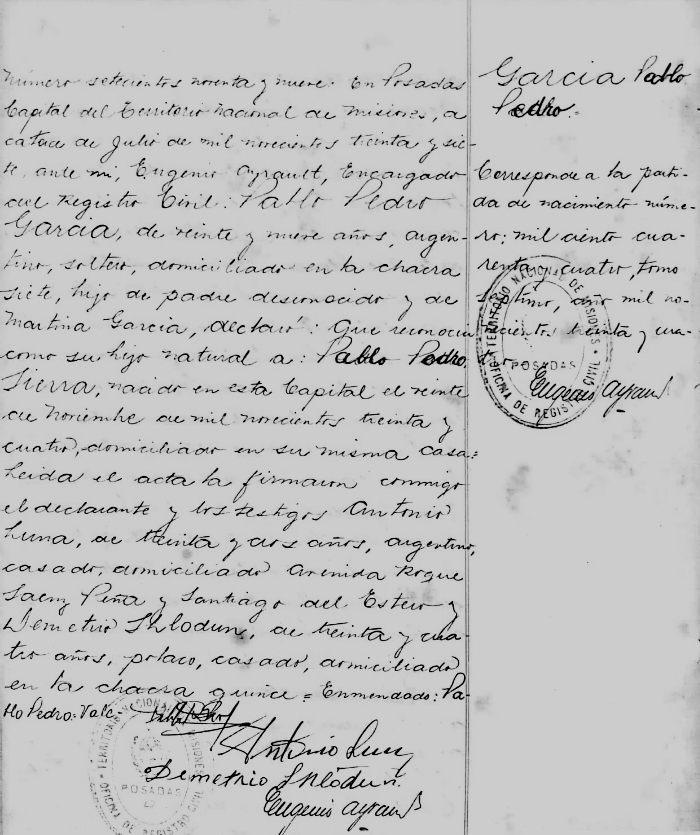 Número setecientos noventa y nueve: En Posadas
Capital del Territorio Nacional de Misiones, a
catorce de Julio de mil novecientos treinta y sie-
te, ante mi, Eugenio Ayrault, Encargado
del Registro Civil: Pablo Pedro
Garcia, de veinte y nueve años, argen-
tino, soltero, domiciliado en la chacra
siete, hijo de padre desconocido y de
Martina Garcia, declaró: Que reconoce
como su hijo natural a: Pablo Pedro
Sierra, nacido en esta Capital el veinte
de Noviembre de mil novecientos treinta y
cuatro, domiciliado en su misma casa=
Leida el acta la firmaron conmigo
el declarante y los testigos Antonio
Luna, de treinta y dos años, argentino,
casado, domiciliado Avenida Roque
Saenz Peña y Santiago del Estero y
Demetrio Shlodun, de treinta y cua-
tro años, polaco, casado, domiciliado
en la chacra quince = Enmendado: Pa-
blo Pedro: Vale-
Antonio Luna
Demetrio Shlodun.
Eugenio Ayrault
TERRITORIO NACIONAL DE MISIONES
POSADAS
OFICINA DE REGISTRO CIVIL
Garcia Pablo
Pedro.-
Corresponde a la parti-
da de nacimiento núme-
ro: mil ciento cua-
renta y cuatro, tomo
séptimo, año mil no-
vecientos treinta y cua-
tro
Eugenio Ayrault
TERRITORIO NACIONAL DE MISIONES
POSADAS
OFICINA DE REGISTRO CIVIL